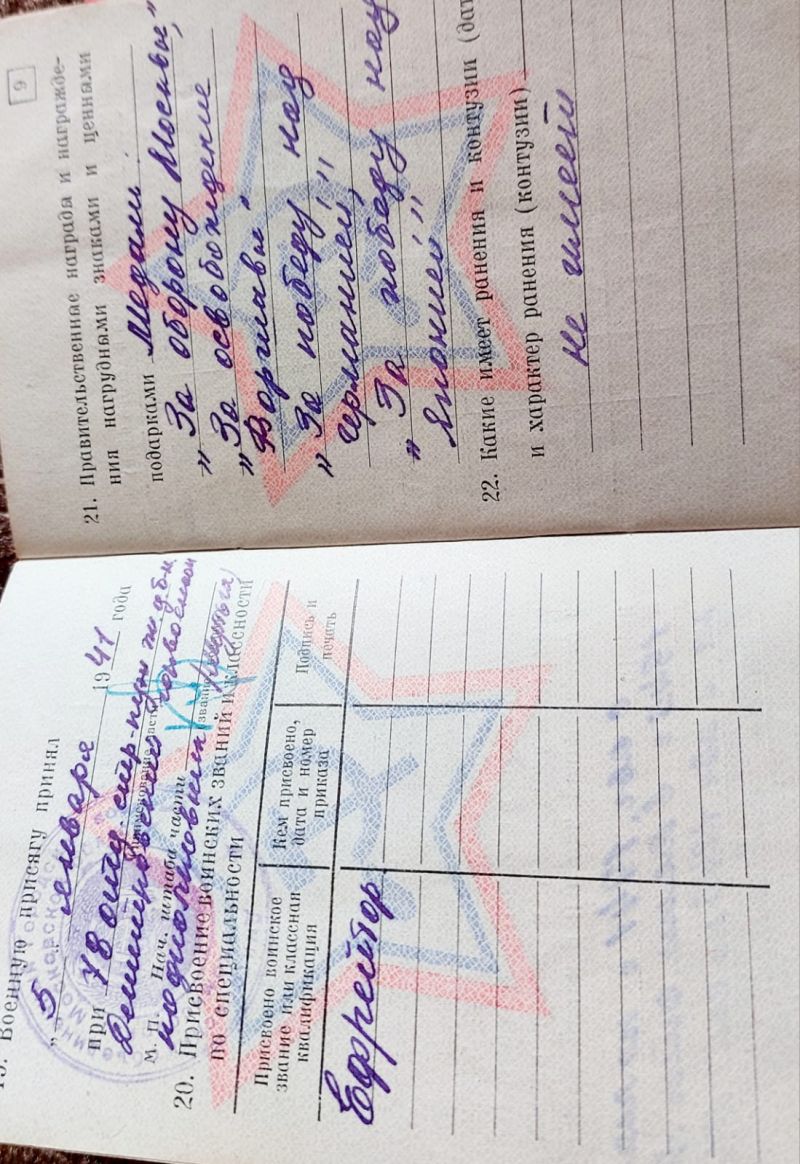 19. Военную присягу принял
„ 5 " января 1941 года
при 78 отд. стр-пул. ж.д. б-н
(наименование части)
М. П. Нач. штаба части
подполковник
(звание)
20. Присвоение воинских званий и классности
по специальности
Присвоено воинское звание или классная квалификация
Кем присвоено, дата и номер приказа
Подпись и печать
Ефрейтор
9
21. Правительственные награды и награжде-
ния нагрудными знаками и ценными
подарками Медали:
„За оборону Москвы",
„За освобождение
Варшавы",
„За победу над
Германией",
„За победу над
Японией"
22. Какие имеет ранения и контузии
и характер ранения (контузии)
не имеет